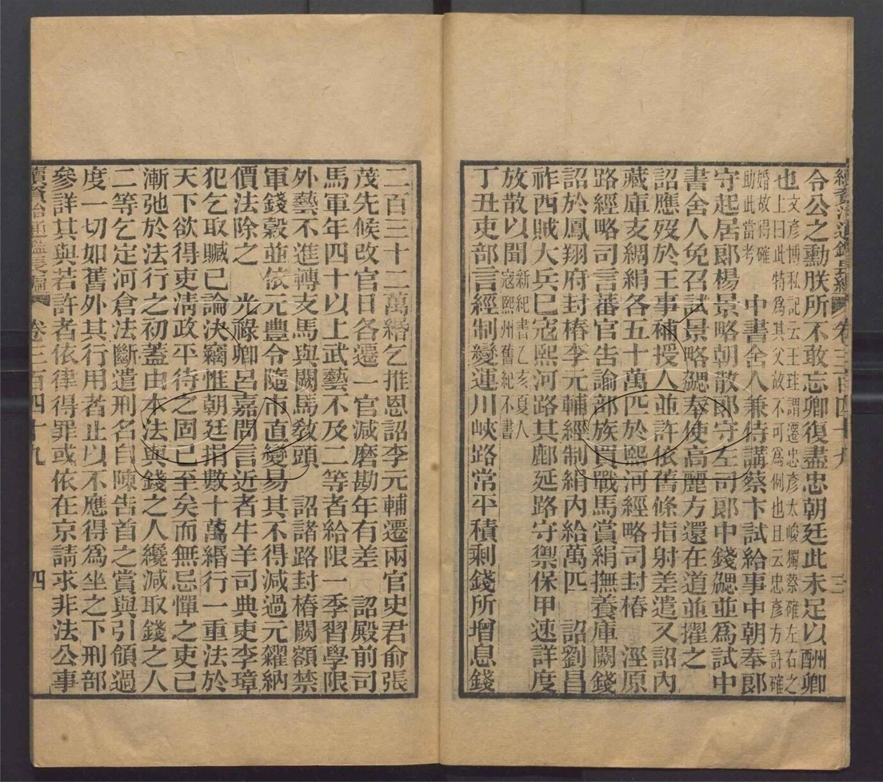 續資治通鑑長編 卷三百四十九 三
令公之勳朕所不敢忘卿復盡忠朝廷此未足以酬卿
也文彥博私記云王珪謂遷忠彥太峻獨蔡確左右之
上曰此特為其父故不可為例也且云忠彥方許確
婚故得確
助此當考 中書舍人兼侍講蔡卞試給事中朝奉郎
守起居郎楊景略朝散郎守左司郎中錢勰並爲試中
書舍人免召試景略勰奉使高麗方還在道並擢之
詔應歿於王事補授人並許依舊條指射差遣又詔內
藏庫支綢絹各五十萬匹於熙河經略司封樁 涇原
路經略司言蕃官告諭部族買戰馬賞絹撫養庫闕錢
詔於鳳翔府封樁李元輔經制絹內給萬匹 詔劉昌
祚西賊大兵已寇熙河路其鄜延路守禦保甲速詳度
放散以聞新紀書乙亥夏人
寇熙州舊紀不書
丁丑吏部言經制變運川峽路常平積剩錢所增息錢
二百三十二萬緡乞推恩詔李元輔遷兩官史君俞張
茂先候改官日各遷一官減磨勘年有差 詔殿前司
馬軍年四十以上武藝不及二等者給限一季習學限
外藝不進轉支馬與闕馬敎頭 詔諸路封樁闕額禁
軍錢穀並依元豐令隨市直變易其不得減過元糴納
價法除之 光祿卿呂嘉問言近者牛羊司典吏李璋
犯乞取贓已論決竊惟朝廷捐數十萬緡行一重法於
天下欲得吏淸政平待之固已至矣而無忌憚之吏已
漸弛於法行之初蓋由本法與錢之人纔減取錢之人
二等乞定河倉法斷遣刑名自陳告首之賞與引領過
度一切如舊外其行用者止以不應得爲坐之下刑部
參詳其與若許者依律得罪或依在京請求非法公事
續資治通鑑長編 卷三百四十九 四